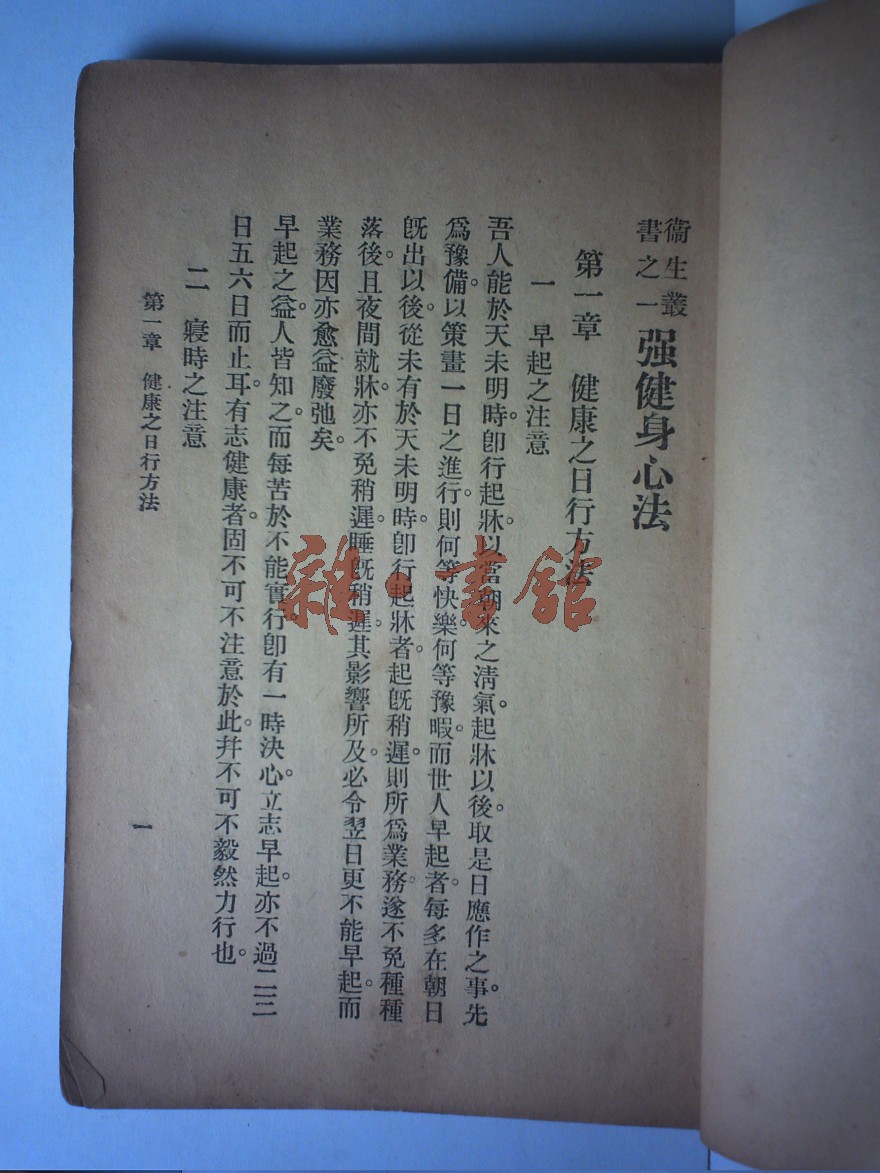 衞生叢
書之一
强健身心法
第一章　健康之日行方法
一　早起之注意
吾人能於天未明時。卽行起牀。以當朝來之淸氣。起牀以後。取是日應作之事。先
爲豫備。以策畫一日之進行。則何等快樂。何等豫暇。而世人早起者。每多在朝日
旣出以後。從未有於天未明時。卽行起牀者。起旣稍遲。則所爲業務。遂不免種種
落後。且夜間就牀。亦不免稍遲。睡旣稍遲。其影響所及。必令翌日更不能早起。而
業務因亦愈益廢弛矣。
早起之益。人皆知之。而每苦於不能實行。卽有一時決心。立志早起。亦不過二三
日五六日而止耳。有志健康者。固不可不注意於此。幷不可不毅然力行也。
二　寢時之注意
第一章　健康之日行方法
一
雜·書館